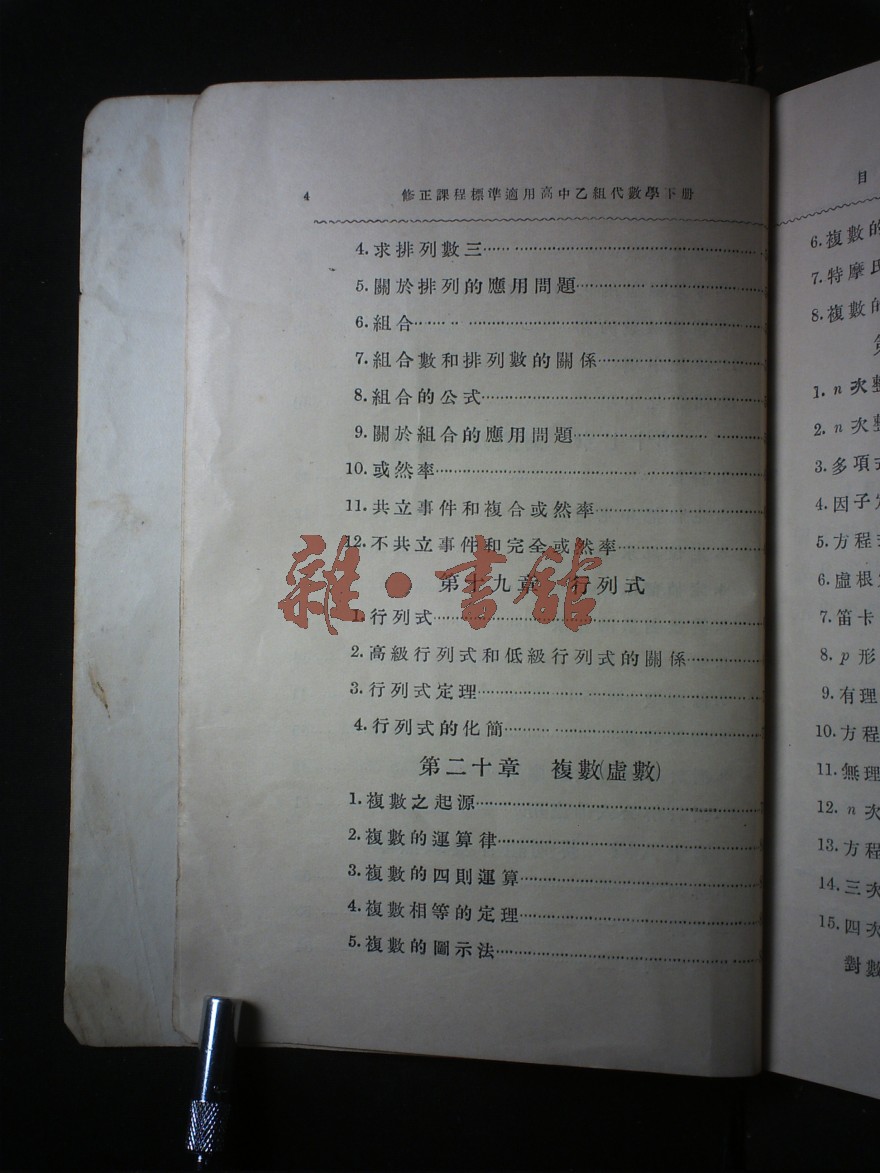 4 修正課程標準適用高中乙組代數學下册
4. 求排列數三
5. 關於排列的應用問題
6. 組合
7. 組合數和排列數的關係
8. 組合的公式
9. 關於組合的應用問題
10. 或然率
11. 共立事件和複合或然率
12. 不共立事件和完全或然率
第十九章 行列式
1. 行列式
2. 高級行列式和低級行列式的關係
3. 行列式定理
4. 行列式的化簡
第二十章 複數(虛數)
1. 複數之起源
2. 複數的運算律
3. 複數的四則運算
4. 複數相等的定理
5. 複數的圖示法
雜·書館
目
6. 複數的
7. 特摩氏
8. 複數的
1. n 次整
2. n 次整
3. 多項式
4. 因子定
5. 方程式
6. 虛根定
7. 笛卡
8. p 形
9. 有理
10. 方程
11. 無理
12. n 次
13. 方程
14. 三次
15. 四次
對數